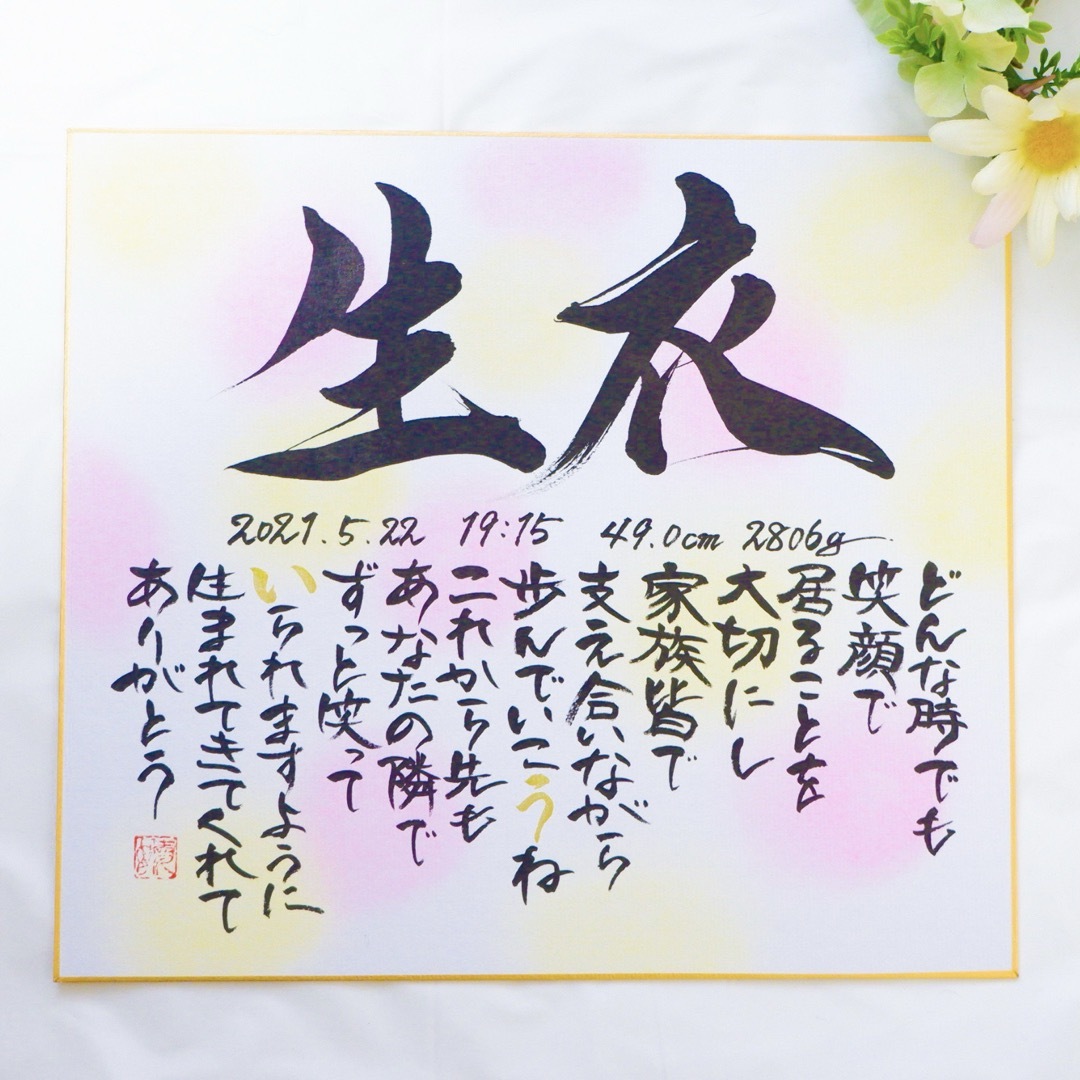 生衣
2021.5.22 19:15 49.0cm 2806g
どんな時でも
笑顔で
居ることを
大切にし
家族皆で
支え合いながら
歩んでいこうね
これから先も
あなたの隣で
ずっと笑って
いられますように
生まれてきてくれて
ありがとう